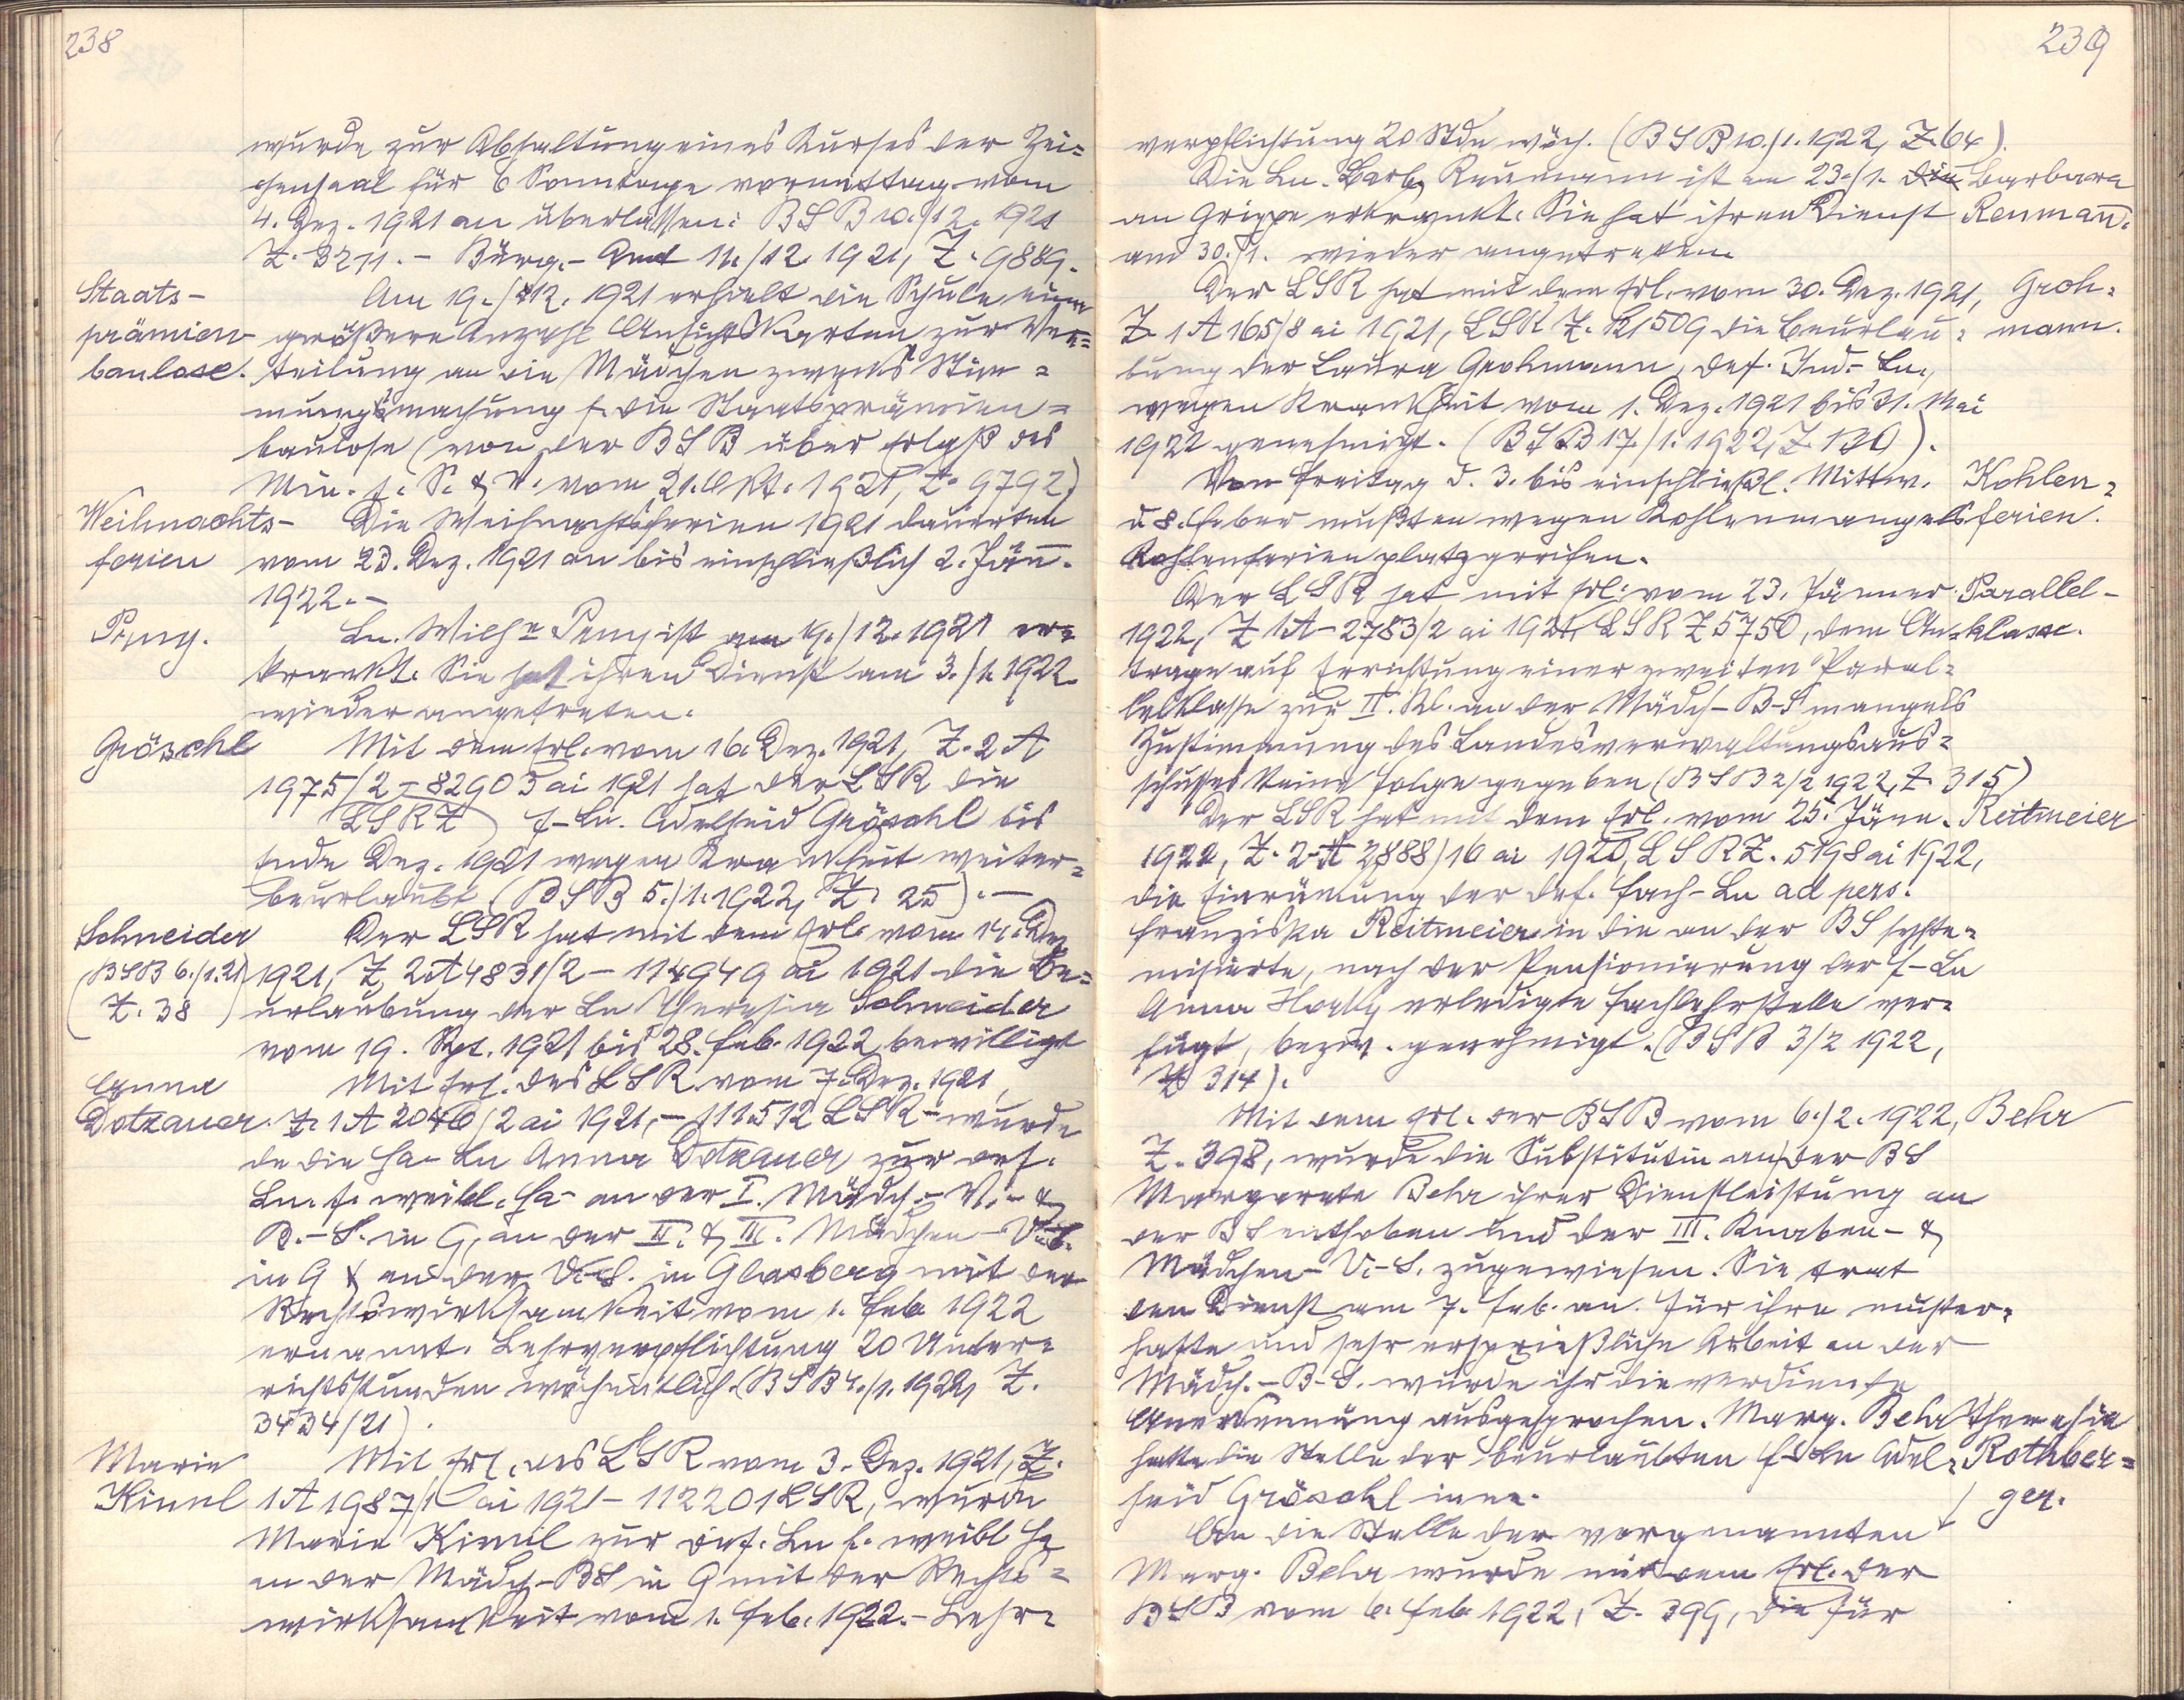 238
wurde zur Abhaltung eines Kurses der Zei=
chensaal für 6 Sonntage vormittag vom
4. Dez. 1921 an überlassen: BSB 10./12. 1921
Z. 3211. – Bürg.- Amt 11./12 1921, Z. 9889.
Staats-
prämien-
baulose.
Am 19./12. 1921 erhielt die Schule eine
größere Anzahl Ansichtskarten zur Ver=
teilung an die Mädchen zwecks Stim=
mungsmachung f. die Staatsprämien=
baulose (von der BSB über Erlaß des
Min. f. S. & V. vom 21. Okt. 1921, Z. 9792)
Weihnachts-
ferien
Die Weihnachtsferien 1921 dauerten
vom 23. Dez. 1921 an bis einschließlich 2. Jän̄.
1922. –
Peny.
Ln. Wilhe Peny ist am 19./12. 1921 er=
krankt. Sie hat ihren Dienst am 3./1. 1922
wieder angetreten.
Gröschl
Mit dem Erl. vom 16. Dez. 1921, Z. 2 A
1975/2 – 82903 ai 1921 hat der LSR die
LSR Z f-Ln. Adelheid Gröschl bis
Ende Dez. 1921 wegen Krankheit weiter=
beurlaubt (BSB 5./1. 1922, Z. 25). –
Schneider
(BSB 6./1. 21)
Z. 38
Der LSR hat mit dem Erl. vom 14. Dez
1921, Z 2A 4831/2 – 114949 ai 1921 die Be=
urlaubung der Ln Theresia Schneider
vom 19. Sept. 1921 bis 28. Feb. 1922 bewilligt
Anna
Dotzauer.
Mit Erl. des LSR vom 7. Dez. 1921,
Z. 1A 2046/2 ai 1921, – 111512 LSR – wurde
de die Ha- Ln Anna Dotzauer zur def.
Ln. f. weibl. Ha- an der I. Mädch.- V.- &
B.-S. in G, an der II. & III. Mädchen- V.-S.
in G & an der V.-S. in Glasberg mit der
Rechtswirksamkeit vom 1. Feb. 1922
ernannt. Lehrverpflichtung 20 Unter=
richtsstunden wöchentlich. (BSB 4./1. 1922, Z.
3434/21).
Marie
Kiml
Mit Erl. des LSR vom 3. Dez. 1921, Z.
1A 1987/1 ai 1921 – 112201 LSR, wurde
Marie Kiml zur def. Ln f. weibl Ha
an der Mädch-BS in G mit der Rechts=
wirksamkeit vom 1. Feb. 1922. – Lehr=
239
verpflichtung 20 Stde wöch. (BSB 10./1. 1922, Z. 64).
Die Ln. Barb. Reumann ist am 23./1. die
Barbara
Reuman̄.
an Grippe erkrankt. Sie hat ihren Dienst
am 30./1. wieder angetreten.
Der LSR hat mit dem Erl. vom 30. Dez. 1921,
Groh=
mann.
Z. 1 A 165/8 ai 1921, LSR Z. 121509 die Beurlau=
bung der Laura Grohmann, def. Ind.- Ln.,
wegen Krankheit vom 1. Dez. 1921 bis 31. Mai
1922 genehmigt. (BSB 17./1. 1922, Z. 130).
Von Freitag d. 3. bis einschließl. Mittw.
Kohlen=
ferien.
d. 8. Feber mußten wegen Kohlenmangels
Kohlenferien platzgreifen.
Der LSR hat mit Erl. vom 23. Jänner
Parallel-
klasse.
1922, Z 1A – 2783/2 ai 1921, LSR Z 5750, dem An=
trage auf Errichtung einer zweiten Paral=
lelklasse zur II. Kl. an der Mädch- B-S mangels
Zustimmung des Landesverwaltungsaus=
schusses keine Folge gegeben (BSB 2/2 1922, Z. 315)
Der LSR hat mit dem Erl. vom 25. Jänn.
Reitmeier
1922, Z. 2-A 2888/16 ai 1920, LSR Z. 5198 ai 1922,
die Einräumung der def. Fach- Ln ad pers.
Franziska Reitmeier in die an der BS syste=
misierte, nach der Pensionierung der f-Ln
Anna erledigte Fachlehrstelle ver=
fügt, bezw. genehmigt. (BSB 3/2 1922,
Z 314).
Mit dem Erl. der BSB vom 6./2. 1922,
Behr
Z. 398, wurde die Substitutin an der BS
Margarete Behr ihrer Dienstleistung an
der BS enthoben und der III. Knaben- &
Mädchen- V.-S. zugewiesen. Sie trat
den Dienst am 7. Feb. an. Für ihre muster=
hafte und sehr ersprießliche Arbeit an der
Mädch.-B-S. wurde ihr die verdiente
Anerkennung ausgesprochen. Marg. Behr
hatte die Stelle der beurlaubten f-Ln Adel=
heid Gröschl inne.
Theresia
Rothber=
ger.
An die Stelle der vorgenannten
Marg. Behr wurde mit dem Erl. der
BSB vom 6. Feb. 1922, Z. 399, die für